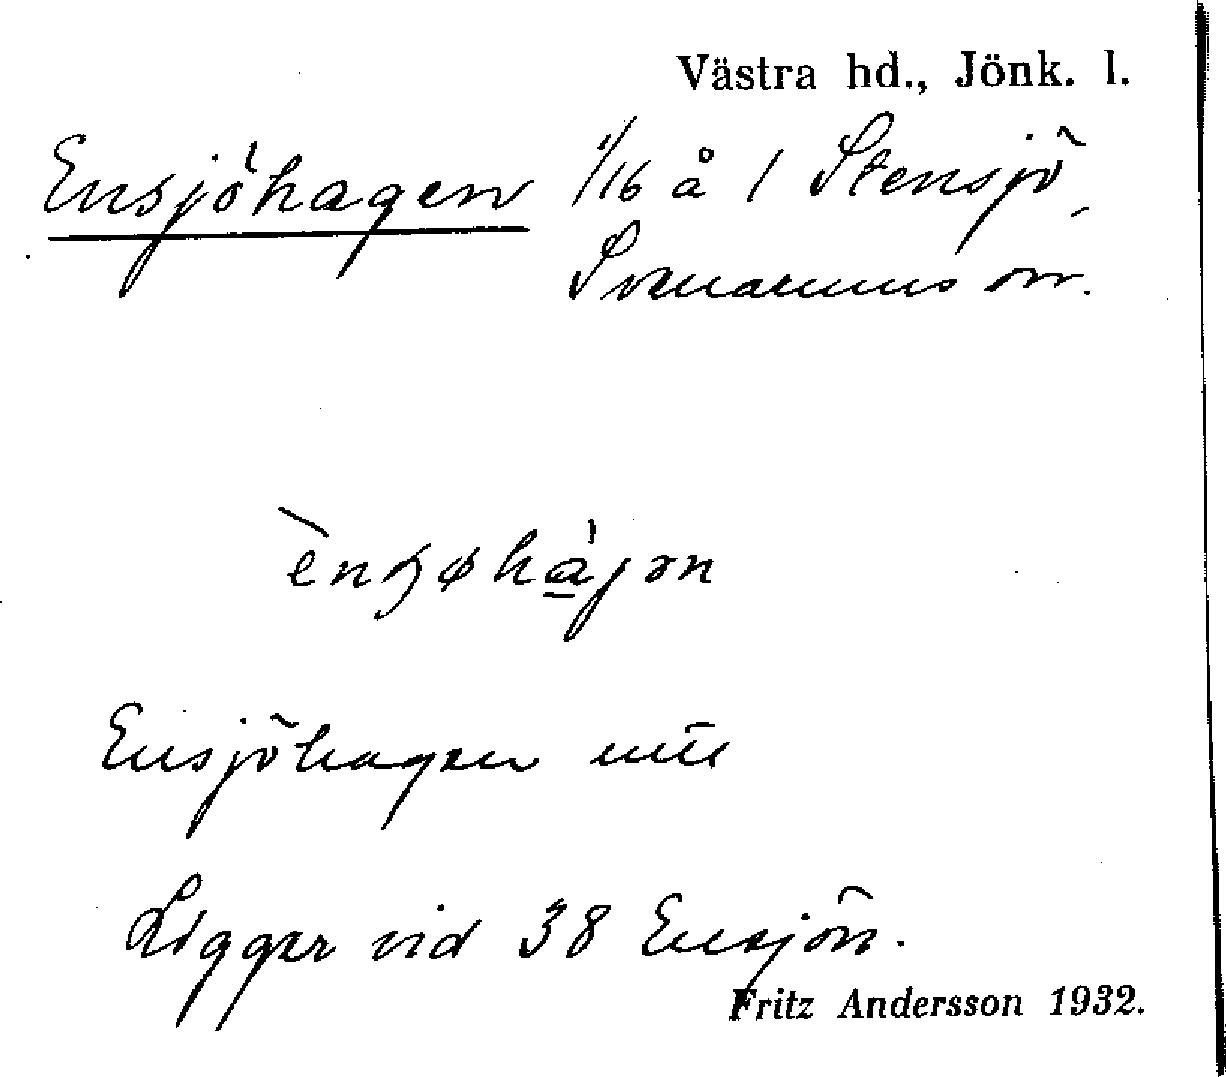 Västra hd., Jönk. l.
Ensjöhagen 1/16 å 1 Stensjö,
Svenarums sn.
ènʃøhàjən
Ensjöhagen
Ligger vid 38 Ensjön.
Fritz Andersson 1932.